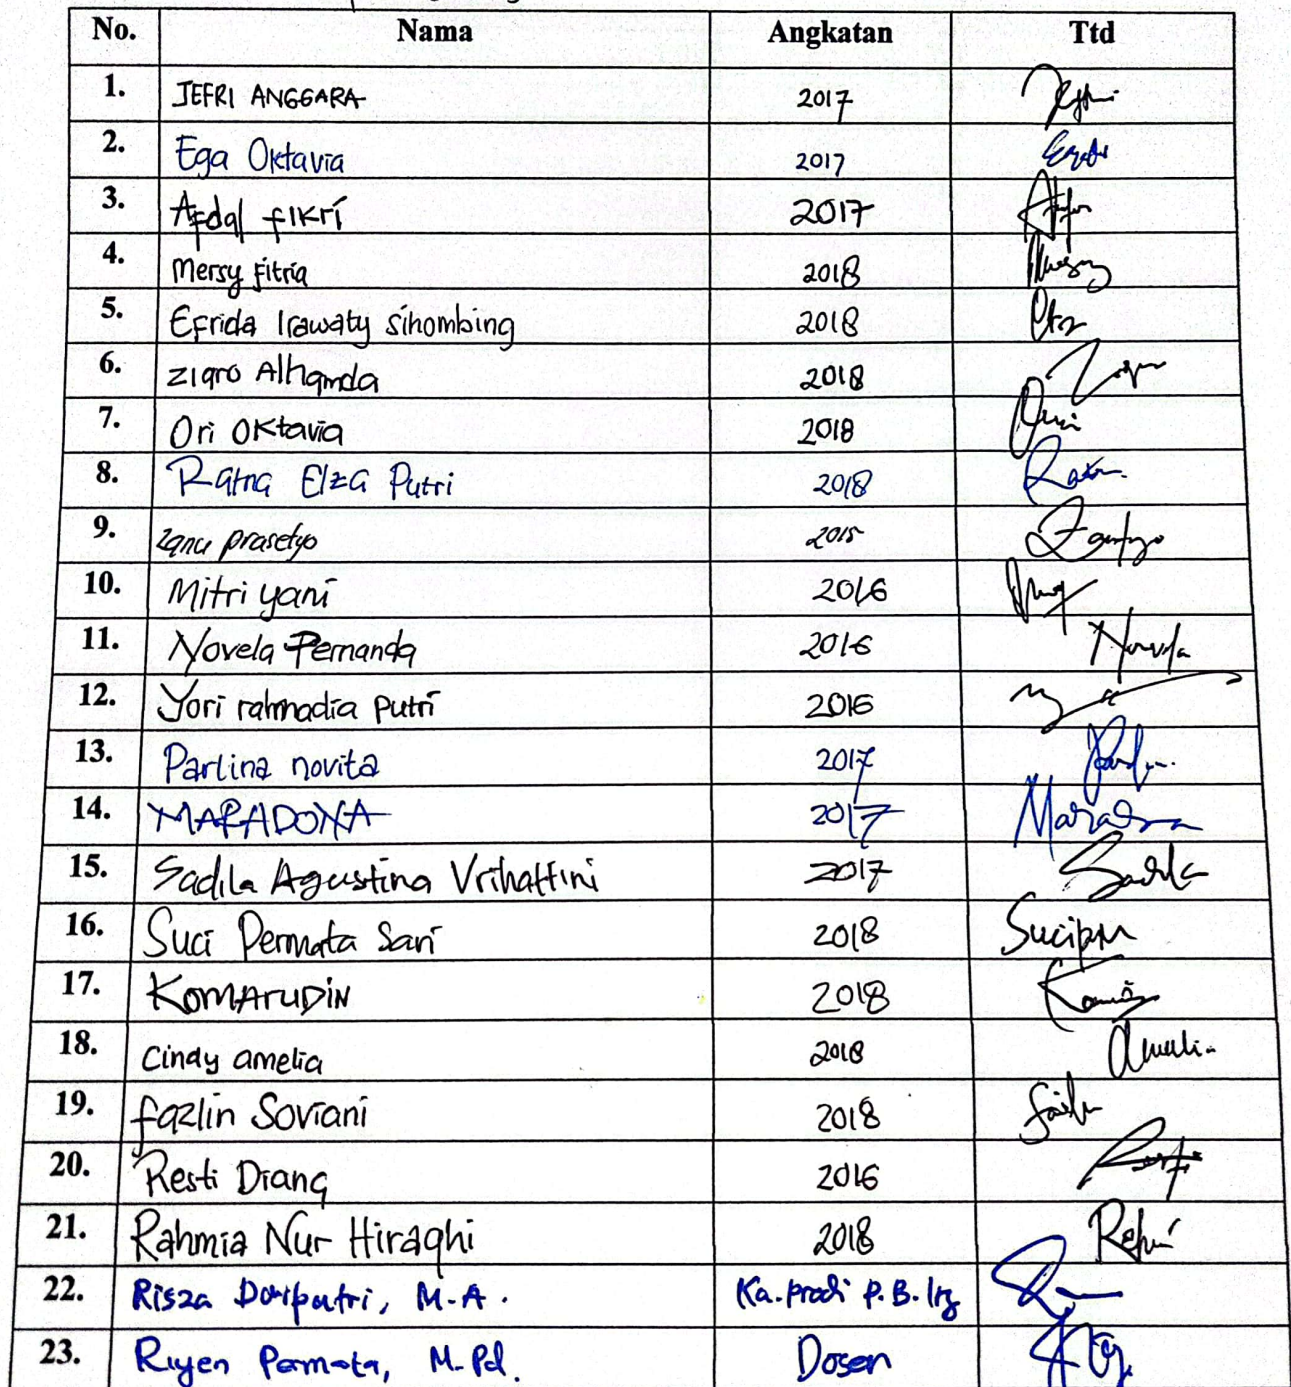 No. Nama Angkatan Ttd
1. JEFRI ANGGARA 2017
2. Ega Oktavia 2017
3. Afdal fikri 2017
4. Mersy Fitria 2018
5. Efrida Irawaty Sihombing 2018
6. Ziqro Alhamda 2018
7. Ori Oktavia 2018
8. Ratna Elza Putri 2018
9. Zanu prasetyo 2015
10. Mitri yani 2016
11. Novela Pernanda 2016 Novela
12. Yori rahmadia putri 2016
13. Parlina novita 2017
14. MARADONA 2017 Maradona
15. Sadila Agustina Vrihattini 2017 Sadila
16. Suci Permata Sari 2018 Sucipm
17. KOMARUDIN 2018
18. Cindy amelia 2018 Amelia
19. fazlin Soviani 2018
20. Resti Diana 2016
21. Rahmia Nur Hiraqhi 2018
22. Risza Dwiputri, M.A. Ka.prodi P.B.Ing
23. Riyen Permata, M.Pd. Dosen